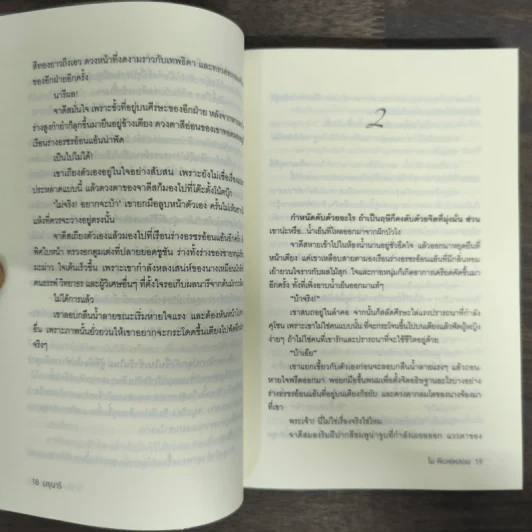 สีทองยาวถึงเอว ดวงหน้าที่งดงามราวกับเทพธิดา และทรวดทรง
ของอีกฝ่ายอีกครั้ง
นารีผล!
จาดีสมั่นใจ เพราะขั้วที่อยู่บนศีรษะของอีกฝ่าย หลังจาก
ร่างสูงกำยำก็ลุกขึ้นมายืนอยู่ข้างเตียง ดวงตาสีอ่อนของเขาทอดมอง
เรือนร่างอรชรอ้อนแอ้นน่าฟัด
เป็นไปไม่ได้!
เขาเถียงตัวเองอยู่ในใจอย่างสับสน เพราะยังไม่เชื่อเรื่อง
ประหลาดแบบนี้ แล้วดวงตาของจาดีสก็มองไปที่โต๊ะตั้งโน้ตบุ๊ก
"ไม่จริง! อยากจะบ้า" เขายกมือลูบหน้าตัวเอง ครั้นไม่เห็น
แล้งที่ควรจะวางอยู่ตรงนั้น
จาดีสเถียงตัวเองแล้วมองไปที่เรือนร่างอรชรอ้อนแอ้นอีกครั้ง
พิศใบหน้า ทรวงอกตูมเต่งที่ปลายยอดชูชัน ร่างทั้งร่างของชายหนุ่ม
มะม่าว ใจเต้นเร็วขึ้น เพราะเขากำลังหลงเสน่ห์ของนางเหมือน
คนธรรพ์ วิทยาธร และผู้วิเศษอื่นๆ ที่ตั้งใจรอเก็บผลนารี
ไม่ได้การแล้ว
เขาลอบกลืนน้ำลายขณะเริ่มหายใจแรง และต้องหันหน้าไป
อื่น เพราะภาพนั้นยั่วยวนให้เขาอยากจะกระโดดขึ้นเตียงไปฟัด
จริงๆ
18 มธุนารี
2
กำหนัดดับด้วยอะไร ถ้าเป็นฤษีก็คงดับด้วยจิตที่มุ่งมั่น ส่วน
เขาน่ะหรือ...น้ำเย็นที่ไหลออกมาจากฝักบัวไง
จาดีสหายเข้าไปในห้องน้ำนานอยู่ชั่วอึดใจ แล้วออกมาหยุดยืนที่
หน้าเตียง แต่เขาเหลือบสายตามองเรือนร่างอรชรอ้อนแอ้นที่มีกลิ่นหอม
เย้ายวนใจราวกับผลไม้สุก ใจและกายหนุ่มก็เกิดอาการเครียดคัดขึ้นมา
อีกครั้ง ทั้งที่เพิ่งอาบน้ำเย็นออกมาแท้ๆ
"บ้าจริง!"
เขาสบถอยู่ในลำคอ จากนั้นก็สลัดศีรษะไล่แรงปรารถนาที่กำลัง
คุโชน เพราะเขาไม่ใช่คนแบบนั้น ที่จะกระโจนขึ้นไปบนเตียงแล้วฟัดผู้หญิง
ง่ายๆ ถ้าไม่ใช่คนที่เขารักและปรารถนาที่จะใช้ชีวิตอยู่ด้วย
"บ้าเอ๊ย"
เขาแยกเขี้ยวกับตัวเองก่อนจะลอบกลืนน้ำลายแรงๆ แล้วถอน
หายใจพรืดออกมา พอยกมือขึ้นพนมเพื่อตั้งจิตอธิษฐานอะไรบางอย่าง
ร่างอรชรอ้อนแอ้นที่อยู่บนเตียงก็ขยับ และดวงตากลมโตของนางจ้องมา
ที่เขา
พระเจ้า! นี่ไม่ใช่เรื่องจริงใช่ไหม
จาดีสมองริมฝีปากสีชมพูน่าจูบที่กำลังเผยอออก แววตาของ
19